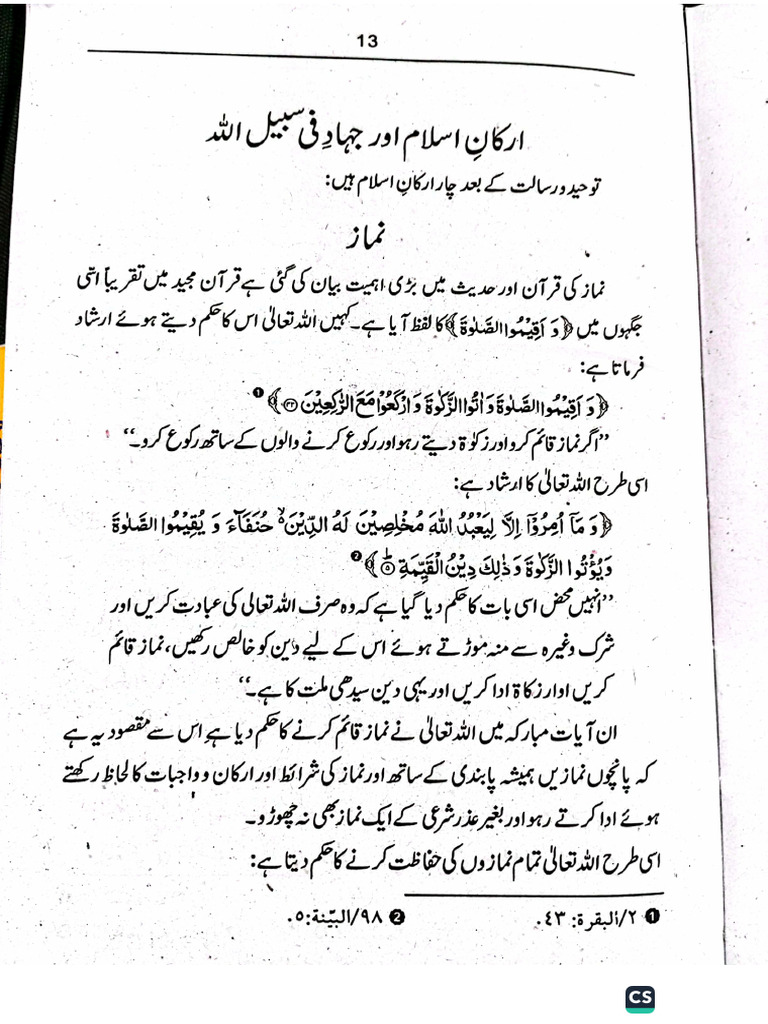 13
ارکانِ اسلام اور جہادِ فی سبیل اللہ
توحید و رسالت کے بعد چار ارکانِ اسلام ہیں:
نماز
نماز کی قرآن اور حدیث میں بڑی اہمیت بیان کی گئی ہے قرآن مجید میں تقریباً اسّی
جگہوں میں ﴿وَ اَقِیْمُوا الصَّلٰوةَ﴾ کا لفظ آیا ہے۔ کہیں اللہ تعالیٰ اس کا حکم دیتے ہوئے ارشاد
فرماتا ہے:
﴿وَ اَقِیْمُوا الصَّلٰوةَ وَ اٰتُوا الزَّكٰوةَ وَ ارْكَعُوْا مَعَ الرّٰكِعِیْنَ ۝۴۳﴾ ❶
”اگر نماز قائم کرو اور زکوٰۃ دیتے رہو اور رکوع کرنے والوں کے ساتھ رکوع کرو۔“
اسی طرح اللہ تعالیٰ کا ارشاد ہے:
﴿وَ مَاۤ اُمِرُوْۤا اِلَّا لِیَعْبُدُوا اللّٰهَ مُخْلِصِیْنَ لَهُ الدِّیْنَ ۙ۬ حُنَفَآءَ وَ یُقِیْمُوا الصَّلٰوةَ
وَ یُؤْتُوا الزَّكٰوةَ وَ ذٰلِكَ دِیْنُ الْقَیِّمَةِ ۝۵ؕ﴾ ❷
”انہیں محض اسی بات کا حکم دیا گیا ہے کہ وہ صرف اللہ تعالی کی عبادت کریں اور
شرک وغیرہ سے منہ موڑتے ہوئے اس کے لیے دین کو خالص رکھیں، نماز قائم
کریں اوار زکاۃ ادا کریں اور یہی دین سیدھی ملت کا ہے۔“
ان آیات مبارکہ میں اللہ تعالیٰ نے نماز قائم کرنے کا حکم دیا ہے اس سے مقصود یہ ہے
کہ پانچوں نمازیں ہمیشہ پابندی کے ساتھ اور نماز کی شرائط اور ارکان و واجبات کا لحاظ رکھتے
ہوئے ادا کرتے رہو اور بغیر عذر شرعی کے ایک نماز بھی نہ چھوڑو۔
اسی طرح اللہ تعالیٰ تمام نمازوں کی حفاظت کرنے کا حکم دیتا ہے:
❶ ۲/البقرة: ٤٣. ❷ ۹۸/البيّنة: ٥.
CS